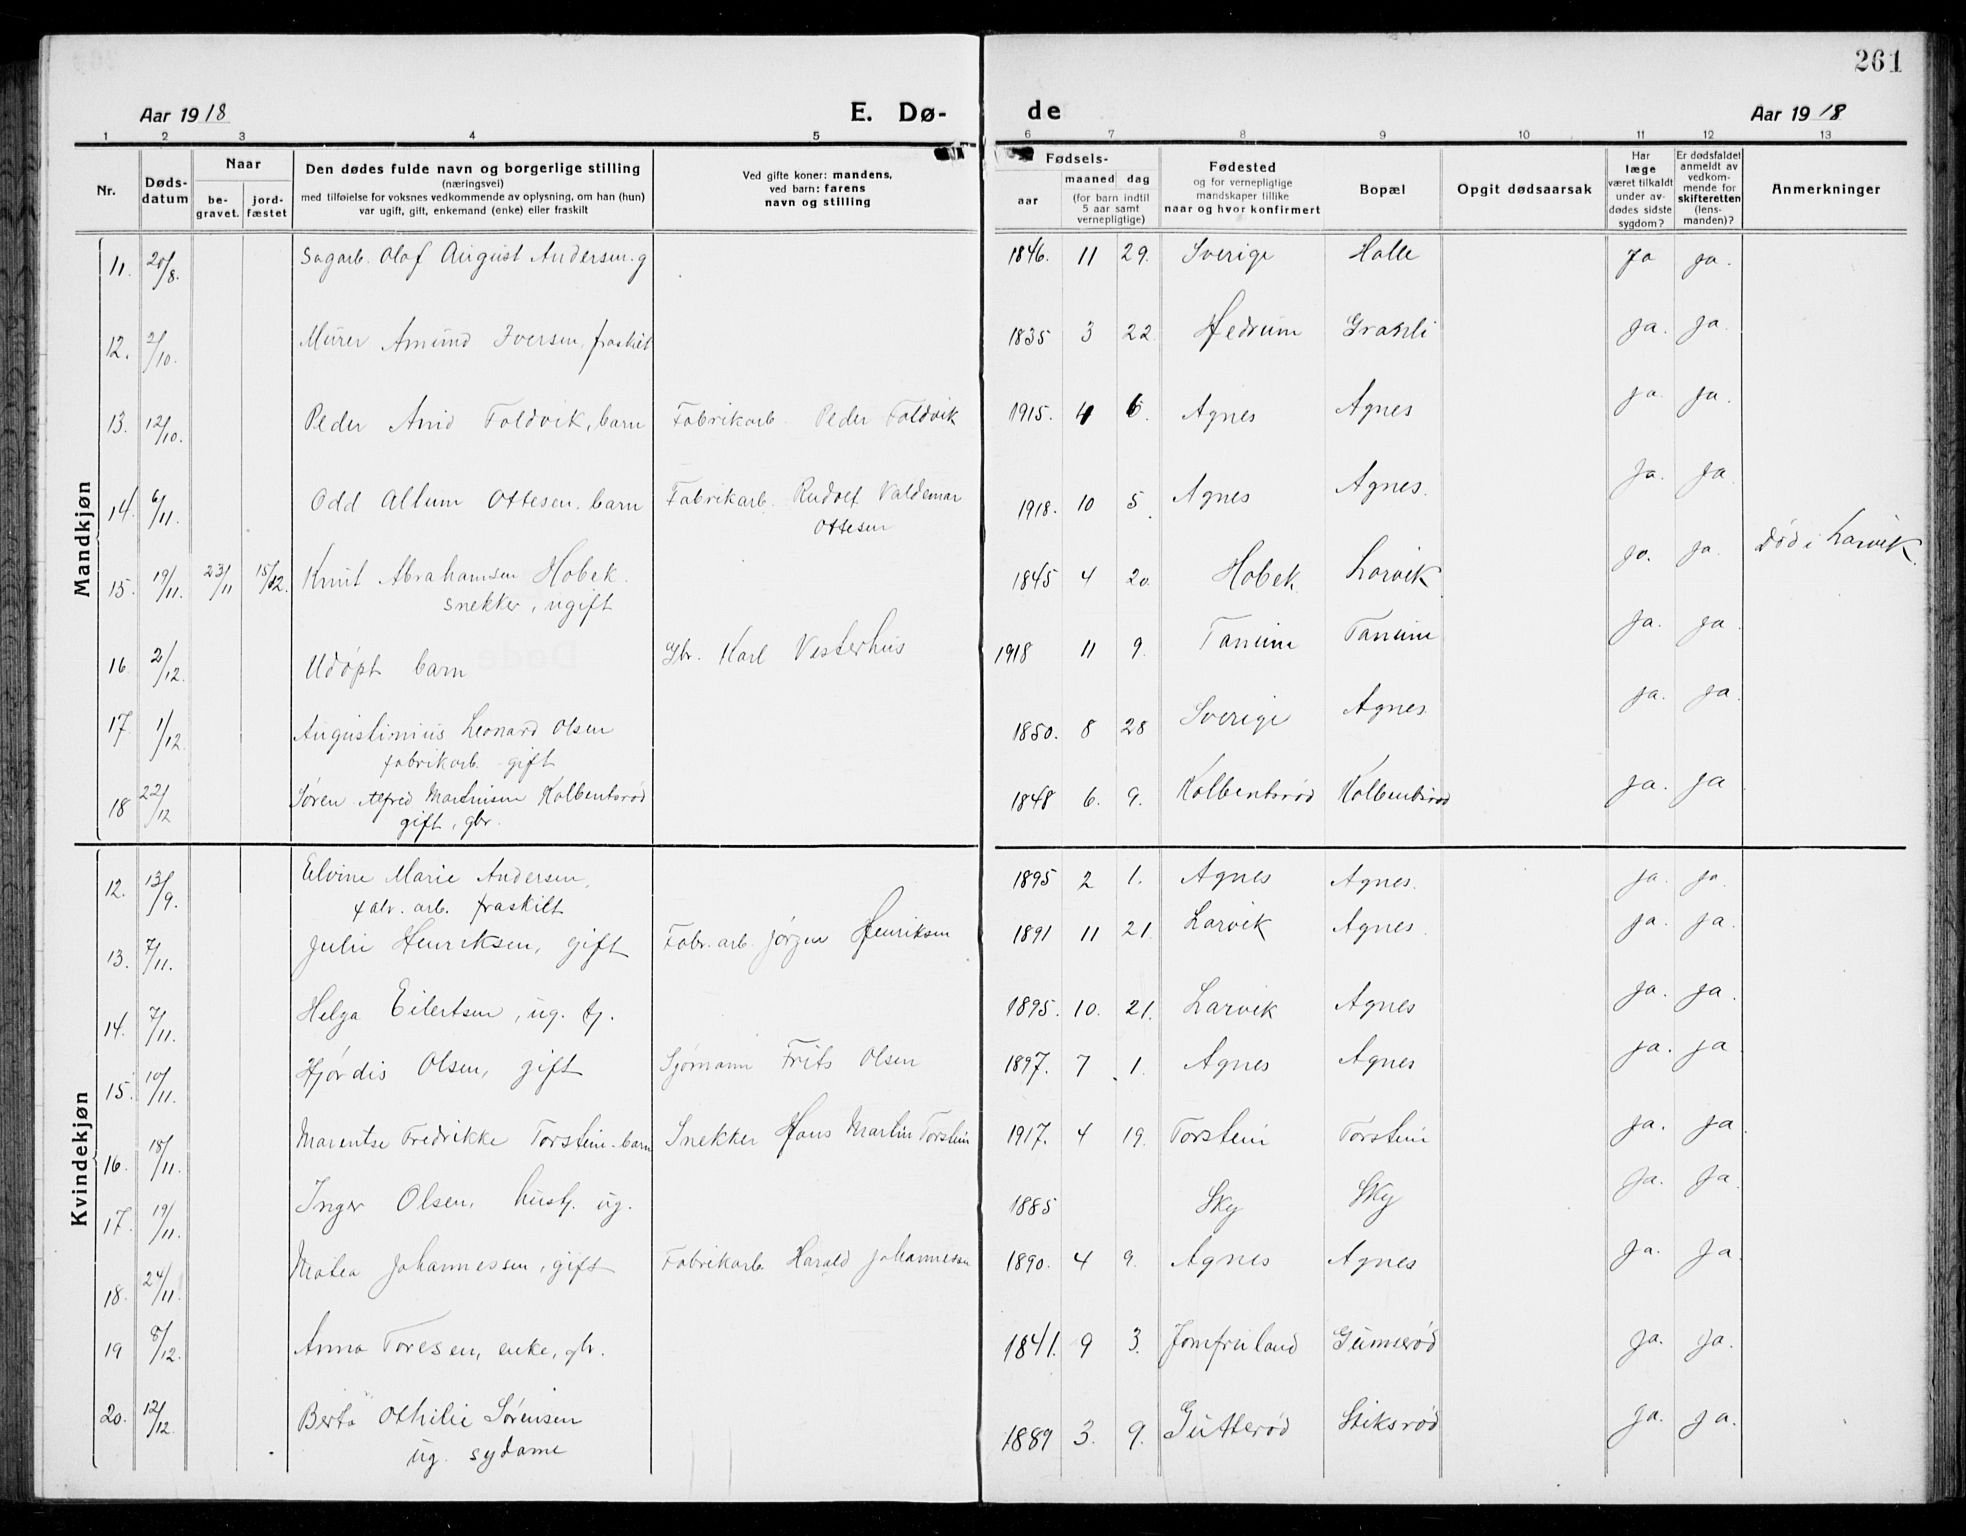 261
Aar 1918 E. Dø- de Aar 1918
1 2 3 4 5 6 7 8 9 10 11 12 13
Nr. Døds-datum Naar be-gravet. jord-fæstet Den dødes fulde navn og borgerlige stilling (næringsvei) med tilføielse for voksnes vedkommende av oplysning, om han (hun) var ugift, gift, enkemand (enke) eller fraskilt Ved gifte koner: mandens, ved barn: farens navn og stilling Fødsels- aar maaned dag (for barn indtil 5 aar samt vernepligtige) Fødested og for vernepligtige mandskaper tillike naar og hvor konfirmert Bopæl Opgit dødsaarsak Har læge været tilkaldt under av-dødes sidste sygdom? Er dødsfaldet anmeldt av vedkom-mende for skifteretten (lens-manden)? Anmerkninger
Mandkjøn
11. 20/8. Sagarb. Olaf August Andersen. g 1846. 11 29. Sverige Halle Ja ja.
12. 2/10. Murer Amund Iversen, fraskilt 1835 3 22. Hedrum Granli ja. ja.
13. 12/10. Peder Arvid Foldvik, barn Fabrikarb. Peder Foldvik 1915. 4 6. Agnes Agnes ja. ja.
14. 6/11. Odd Allum Ottesen, barn Fabrikarb. Rudolf Valdemar
Ottesen 1918. 10 5. Agnes Agnes. Ja. ja.
15. 19/11. 23/11 15/12. Knut Abrahamsen Hobek.
snekker, ugift 1845 4 20. Hobek. Larvik ja. ja. Død i Larvik.
16. 2/12. Udøpt barn Gbr. Karl Vesterhus 1918 11 9. Tanum Tanum ja. ja.
17. 1/12. Augustinius Leonard Olsen
fabrikarb. gift 1850. 8 28 Sverige Agnes. ja. ja.
18 22/12 Søren Alfred Martinsen Kolbentsrød
gift, gbr. 1848 6. 9. Kolbentsrød Kolbentsrød ja. ja
Kvindekjøn
12. 13/9. Elvine Marie Andersen,
fabr. arb. fraskilt 1895 2 1. Agnes Agnes. ja. ja.
13. 7/11. Julie Henriksen, gift Fabr. arb. Jørgen Henriksen 1891 11 21. Larvik Agnes. ja. ja.
14. 7/11. Helga Eilertsen, ug. tj. 1895. 10. 21. Larvik Agnes ja. ja.
15. 10/11. Hjørdis Olsen, gift Sjømann Frits Olsen 1897. 7 1. Agnes Agnes ja. ja
16. 18/11. Marentse Fredrikke Torstein. barn Snekker Hans Martin Torstein 1917. 4 19. Torstein Torstein ja. ja
17. 19/11. Inger Olsen, hustj. ug. 1885 Sky Sky Ja. Ja.
18. 24/11. Matea Johannessen, gift Fabrikarb. Harald Johannessen 1890. 4 9. Agnes Agnes Ja. Ja.
19 8/12. Anna Toresen, enke, gbr. 1841. 9 3. Jomfruland Gumserød ja. ja.
20. 12/12. Berta Othilie Sørensen
ug. sydame 1889 3. 9. Gutterød Stiksrød ja. ja.